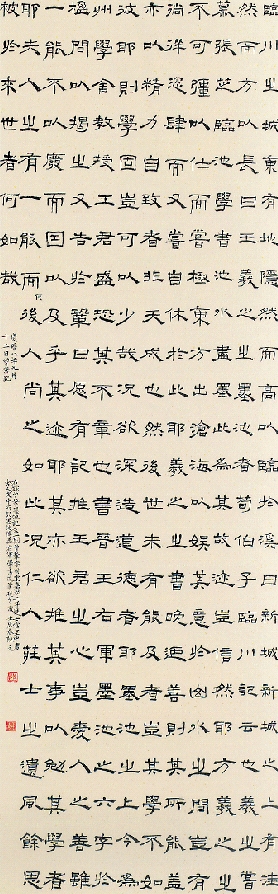 臨川之城東有地隱然而高以臨於溪曰新城新城之上有池洼
然而方以長曰王羲之之墨池者荀伯子臨川記云也羲之嘗
慕張芝臨池學書池水盡黑此為其故迹豈信然耶方羲之之
不可彊以仕而嘗極東方出滄海以娛其意於山水之間豈有
徜徉恣肆而又嘗自休於此耶羲之之書晚乃善則其所能蓋
亦以精力自致者非天成也然後世未有能及者豈其學不如
彼耶則學固豈可以少哉況欲深造道德者耶墨池之上今為
州學舍教授王君盛恐其不章也書晉王右軍墨池之六字於
楹間以揭之又告於鞏曰願有記推王君之心豈愛人之善雖
一能不以廢而因以及乎其迹耶其亦欲推其事以勉其學者
耶夫人之有一能而後人尚之如此況仁人莊士之遺風餘思
被於來世者何如哉